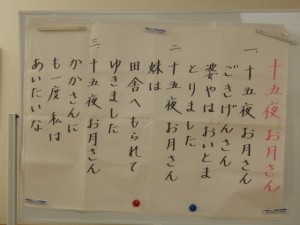 十五夜お月さん
一、十五夜お月さん
ごきげんさん
婆やはおいとま
とりました
二、十五夜お月さん
妹は
田舎へもられて
ゆきました
三、十五夜お月さん
かかさんに
も一度私は
あいたいな